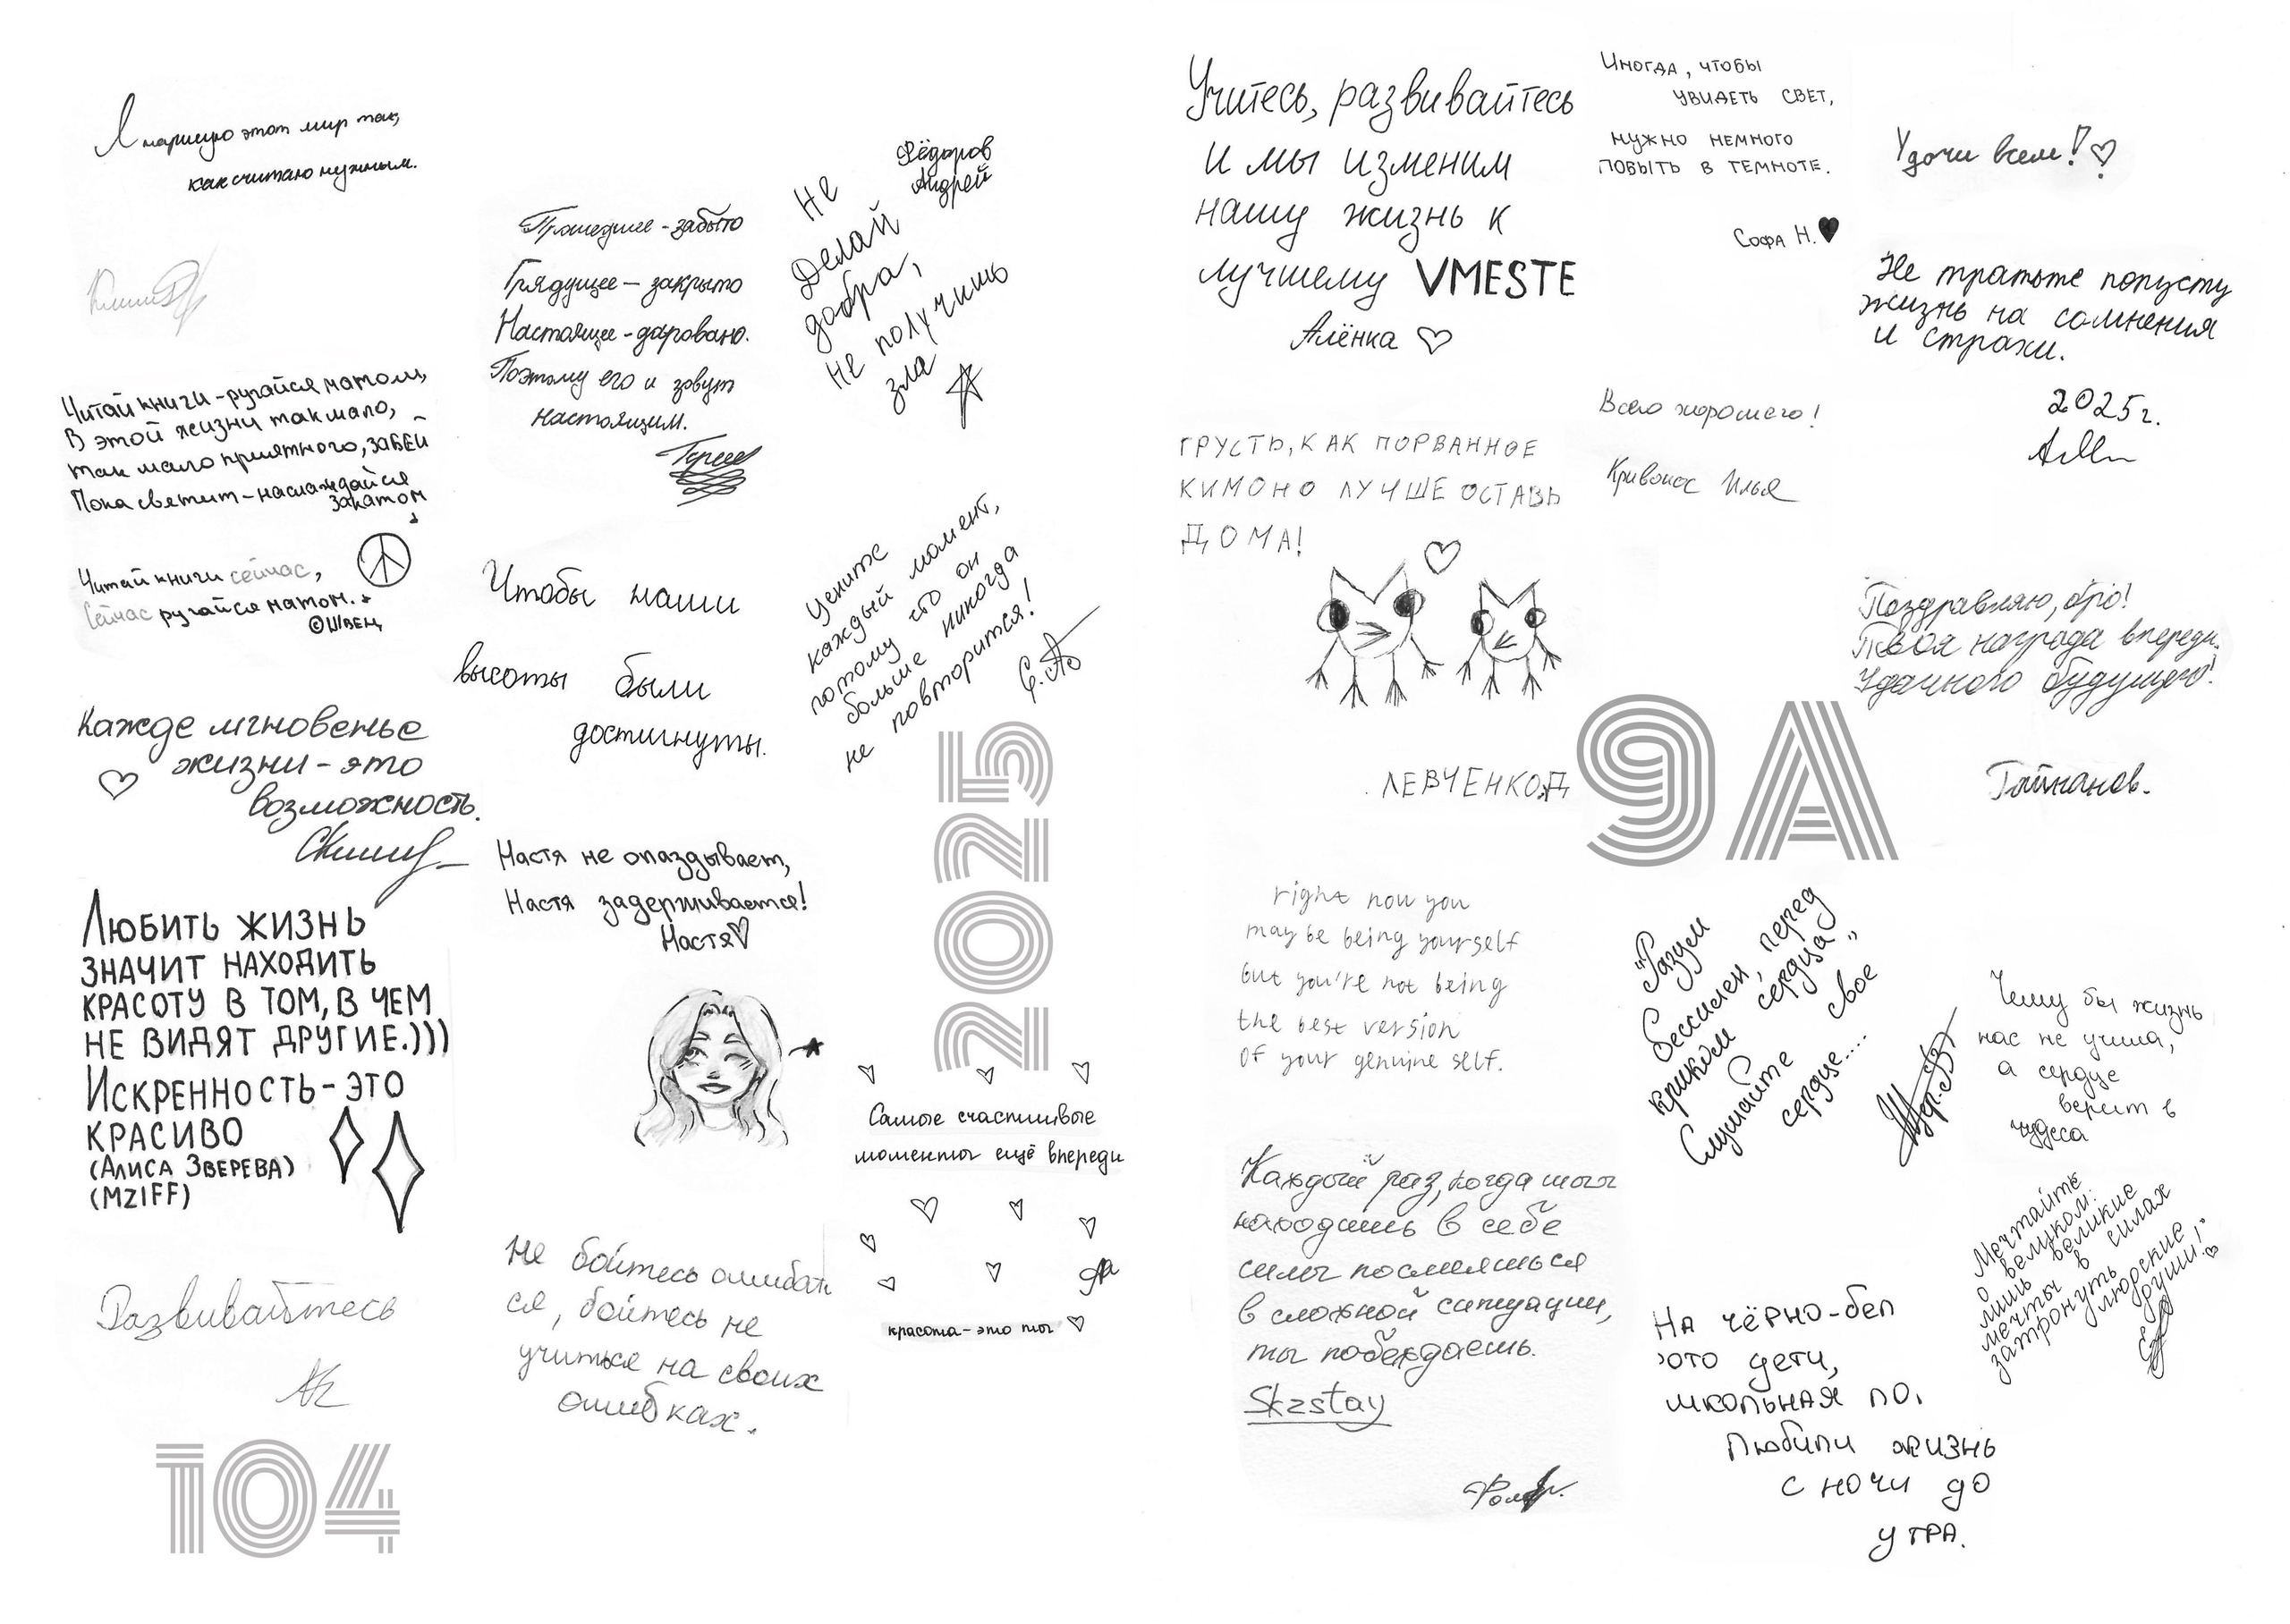 Я нарисую этот мир так,
как считаю нужным.
Читай книги - ругайся матом,
В этой жизни так мало,
так мало приятного, ЗАБЕЙ
Пока светит - наслаждайся
закатом
Читай книги сейчас,
Сейчас ругайся матом.
©ШВЕЦ
Кажде мгновенье
жизни - это
возможность.
Любить жизнь
значит находить
красоту в том, в чем
не видят другие.)))
Искренность - это
красиво
(Алиса Зверева)
(MZIFF)
Развивайтесь
104
Прошедшее - забыто
Грядущее - закрыто
Настоящее - даровано.
Поэтому его и зовут
настоящим.
Чтобы наши
высоты были
достигнуты.
Настя не опаздывает,
Настя задерживается!
Настя
Не бойтесь ошибать
ся, бойтесь не
учиться на своих
ошибках.
Фёдоров
Андрей
Не
Делай
добра,
не получишь
зла
Цените
каждый момент,
потому что он
больше никогда
не повторится!
2025
Самые счастливые
моменты ещё впереди
красота - это ты
Учитесь, развивайтесь
и мы изменим
нашу жизнь к
лучшему VMESTE
Алёнка
ГРУСТЬ, КАК ПОРВАННОЕ
КИМОНО ЛУЧШЕ ОСТАВЬ
ДОМА!
ЛЕВЧЕНКО.Д
right now you
may be being yourself
but you're not being
the best version
of your genuine self.
Каждый раз, когда ты
находишь в себе
силы посмеяться
в сложной ситуации,
ты побеждаешь.
Skzstay
Иногда, чтобы
увидеть свет,
нужно немного
побыть в темноте.
Софа Н.
Всего хорошего!
Кривонос Илья
9А
"Разум
бессилен, перед
криком сердца"
Слушайте свое
сердце....
На чёрно-бел
фото дети,
школьная по.
Любили жизнь
с ночи до
утра.
Удачи всем!
Не тратьте попусту
жизнь на сомнения
и страхи.
2025г.
Поздравляю, бро!
Твоя награда впереди.
Удачного будущего!
Гайнанов.
Чему бы жизнь
нас не учила,
а сердце
верит в
чудеса
Мечтайте
о великом:
лишь великие
мечты в силах
затронуть людские
души!"